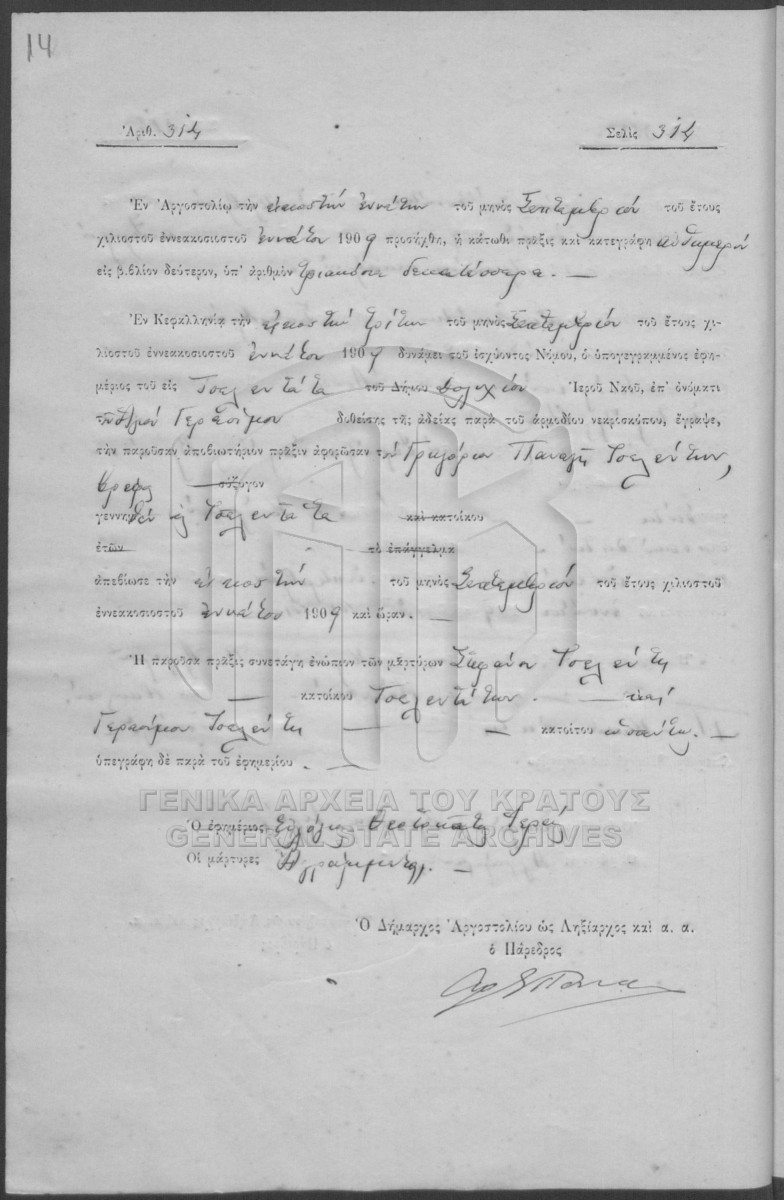 14
Ἀριθ. 314
Σελὶς 314
Ἐν Ἀργοστολίῳ τὴν εἰκοστὴν ἐννάτην τοῦ μηνὸς Σεπτεμβρίου τοῦ ἔτους
χιλιοστοῦ ἐννεακοσιοστοῦ ἐννάτου 1909 προσήχθη, ἡ κάτωθι πρᾶξις καὶ κατεγράφη αὐθημερὸν
εἰς βιβλίον δεύτερον, ὑπ' ἀριθμὸν τριακόσια δεκατέσσαρα. —
Ἐν Κεφαλληνίᾳ τὴν εἰκοστὴν τρίτην τοῦ μηνὸς Σεπτεμβρίου τοῦ ἔτους χι-
λιοστοῦ ἐννεακοσιοστοῦ ἐννάτου 1909 δυνάμει τοῦ ἰσχύοντος Νόμου, ὁ ὑπογεγραμμένος ἐφη-
μέριος τοῦ εἰς Τσελεντάτα τοῦ Δήμου Ἱεροῦ Ναοῦ, ἐπ' ὀνόματι
τοῦ Ἁγίου Γερασίμου δοθείσης τῆς ἀδείας παρὰ τοῦ ἁρμοδίου νεκροσκόπου, ἔγραψε,
τὴν παροῦσαν ἀποβιωτήριον πρᾶξιν ἀφορῶσαν τὸν Γρηγόριον Παναγῆ Τσελέντην,
βρέφος σύζυγον
γεννηθὲν εἰς Τσελεντάτα καὶ κατοίκου
ἐτῶν τὸ ἐπάγγελμα
ἀπεβίωσε τὴν εἰκοστὴν τοῦ μηνὸς Σεπτεμβρίου τοῦ ἔτους χιλιοστοῦ
ἐννεακοσιοστοῦ ἐννάτου 1909 καὶ ὥραν. —
Ἡ παροῦσα πρᾶξις συνετάγη ἐνώπιον τῶν μαρτύρων Σπυράνου Τσελέντη
— κατοίκου Τσελεντάτων. — καὶ
Γερασίμου Τσελέντη — — κατοίκου —
ὑπεγράφη δὲ παρὰ τοῦ ἐφημερίου. —
ΓΕΝΙΚΑ ΑΡΧΕΙΑ ΤΟΥ ΚΡΑΤΟΥΣ
Ὁ ἐφημέριος Ἱερεὺς
GENERAL STATE ARCHIVES
Οἱ μάρτυρες Ἀγράμματοι. —
Ὁ Δήμαρχος Ἀργοστολίου ὡς Ληξίαρχος καὶ α. α.
ὁ Πάρεδρος